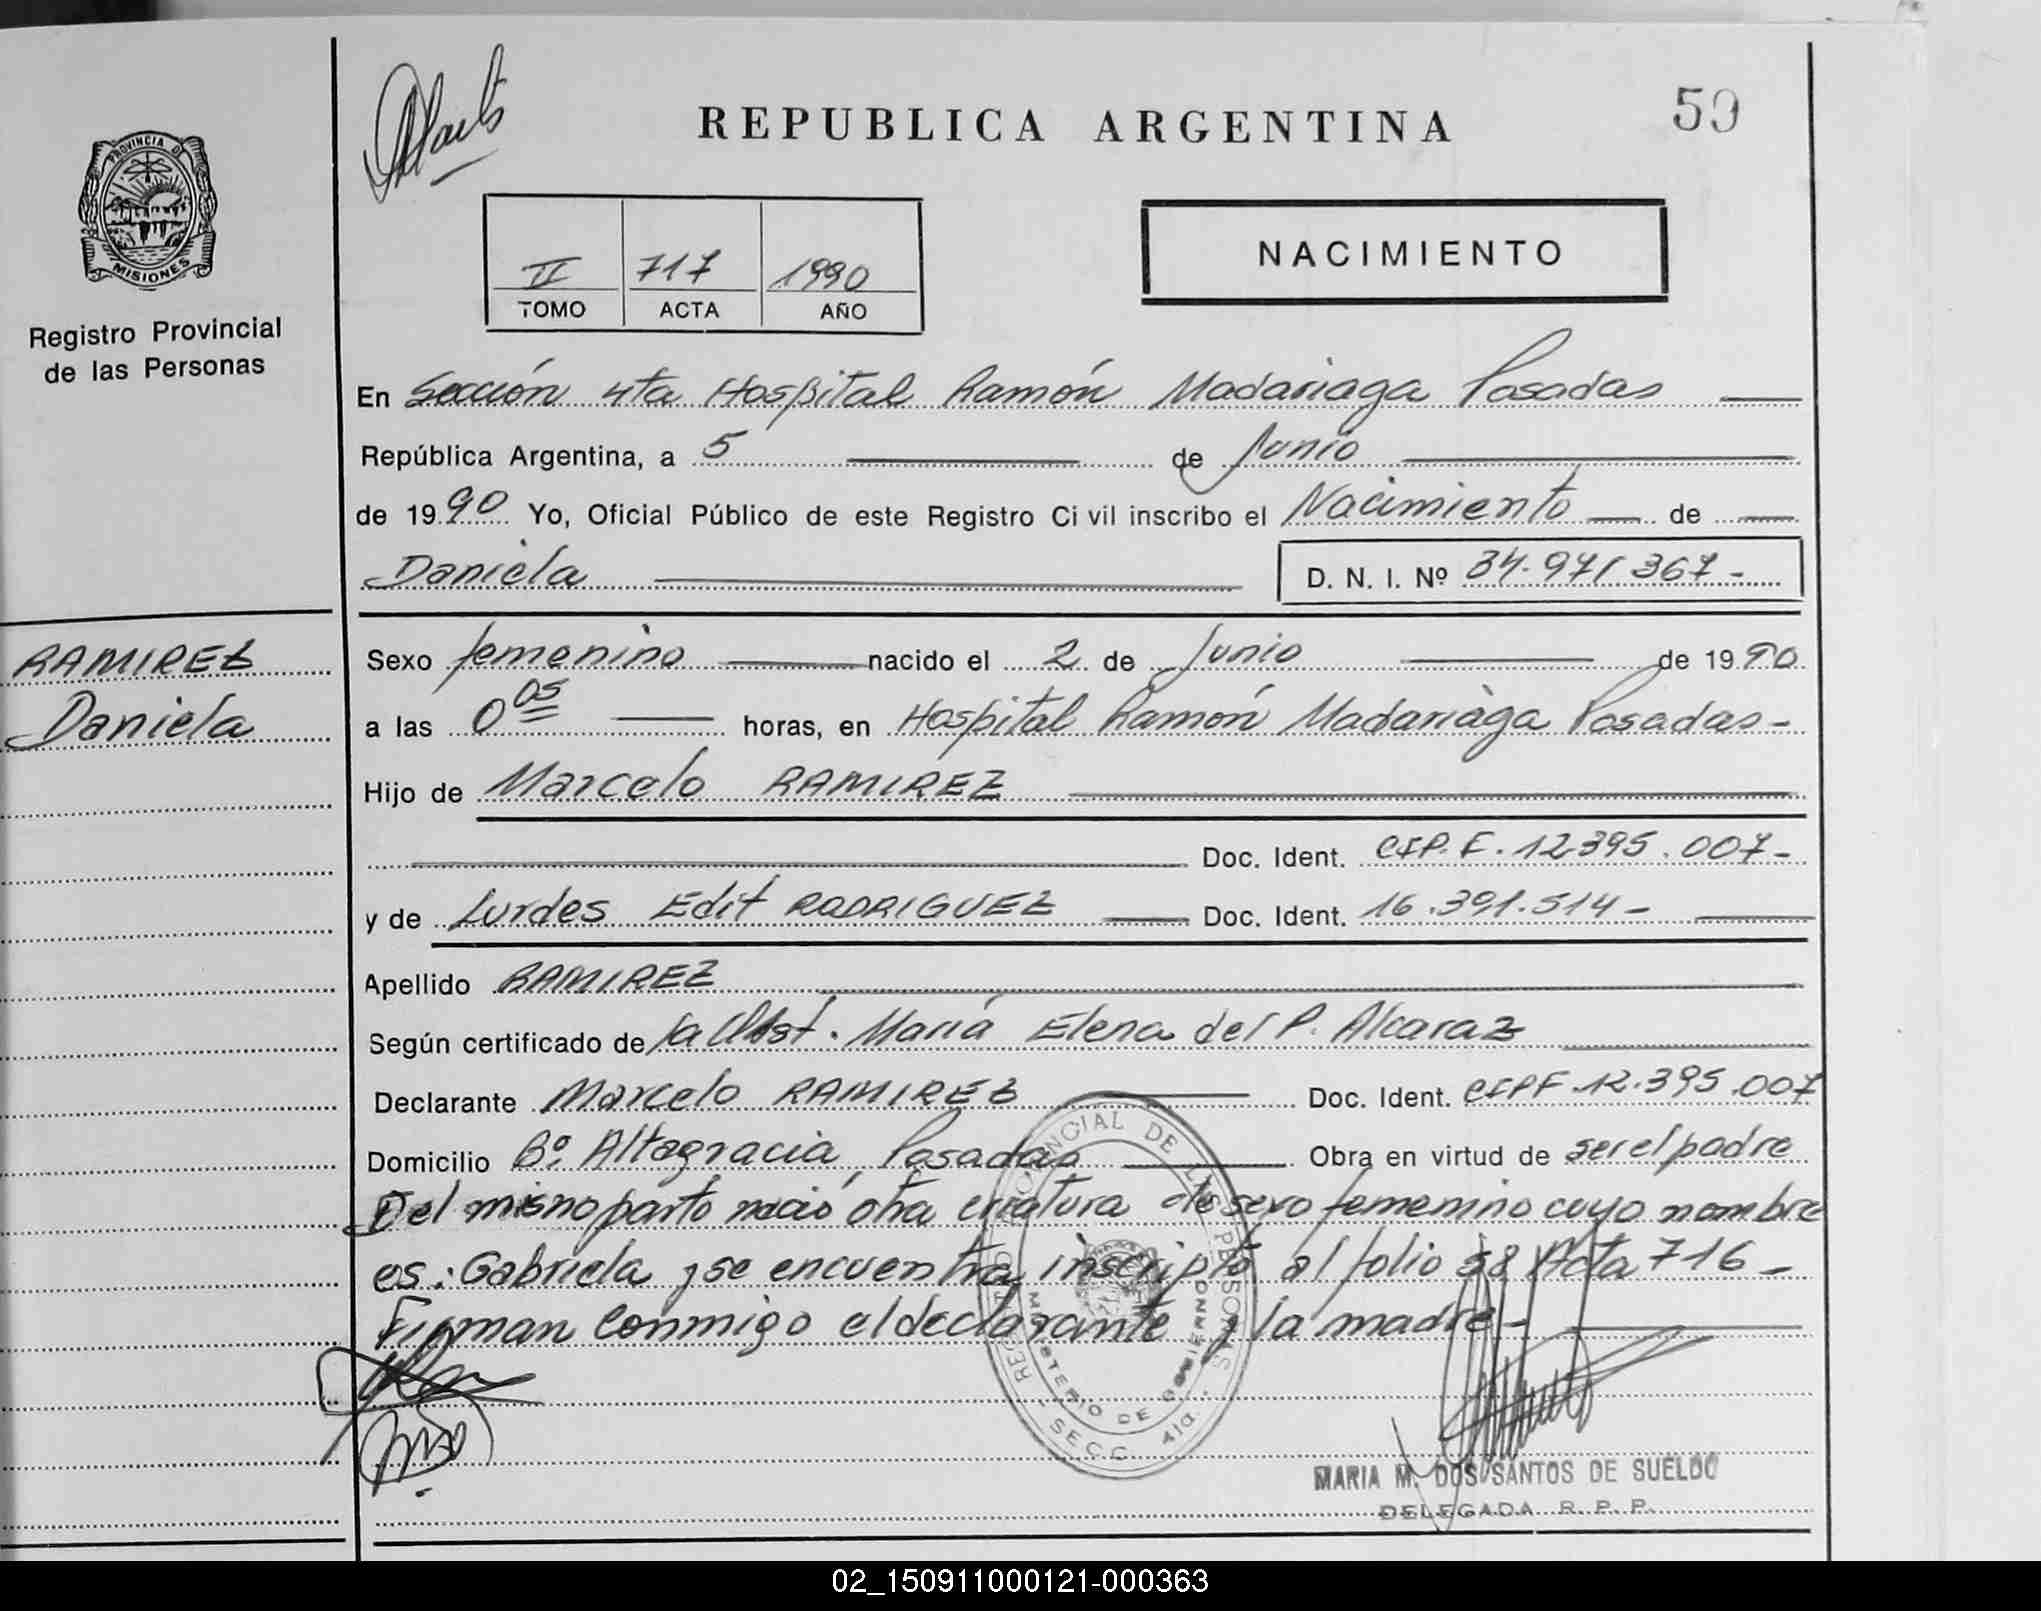 59
REPUBLICA ARGENTINA
PROVINCIA DE
MISIONES
Registro Provincial
de las Personas
II 717 1990
TOMO ACTA AÑO
NACIMIENTO
En Sección 4ta Hospital Ramón Madariaga Posadas
República Argentina, a 5 de Junio
de 1990 Yo, Oficial Público de este Registro Ci vil inscribo el Nacimiento de
Daniela D. N. I. Nº 34.971367-
RAMIREZ
Daniela
Sexo femenino nacido el 2 de Junio de 1990
a las 0 05 horas, en Hospital Ramón Madariàga Posadas-
Hijo de Marcelo RAMIREZ
Doc. Ident. CIP.F. 12395.007-
y de Lurdes Edit RODRIGUEZ Doc. Ident. 16.391.514-
Apellido RAMIREZ
Según certificado de la Obst. María Elena del P. Alcaraz
Declarante Marcelo RAMIREZ Doc. Ident. CIPF 12.395.007
Domicilio Bº Altagracia, Posadas Obra en virtud de ser el padre
Del mismo parto nació otra criatura de sexo femenino cuyo nombre
es: Gabriela y se encuentra inscripto al folio 58 Acta 716-
Firman conmigo el declarante y la madre-
REGISTRO PROVINCIAL DE LAS PERSONAS
MINISTERIO DE GOBIERNO
SECC. 4ta.
MARIA M. DOS SANTOS DE SUELDO
DELEGADA R. P. P.
02_150911000121-000363